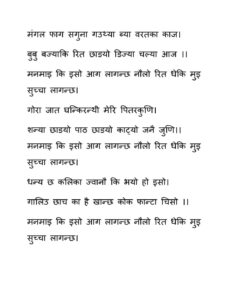 मंगल फाग सगुना गउय्या ब्या वरतका काज।
बुबु बज्याकि रित छाडयो डिज्या चल्या आज ।।
मनमाइ कि इसो आग लागन्छ नौलो रित धेकि मुइ
सुच्चा लागन्छ।
गोरा जात घन्किरन्यी मेरि पितरकुणि।
शन्या छाडयो पाठ छाडयो काट्यो जनै जुणि।।
मनमाइ कि इसो आग लागन्छ नौलो रित धेकि मुइ
सुच्चा लागन्छ।
धन्य छ कलिका ज्वानौ कि भयो हो इसो।
गालिउ छाच का है खान्छ कोक फान्टा चिसो ।।
मनमाइ कि इसो आग लागन्छ नौलो रित धेकि मुइ
सुच्चा लागन्छ।